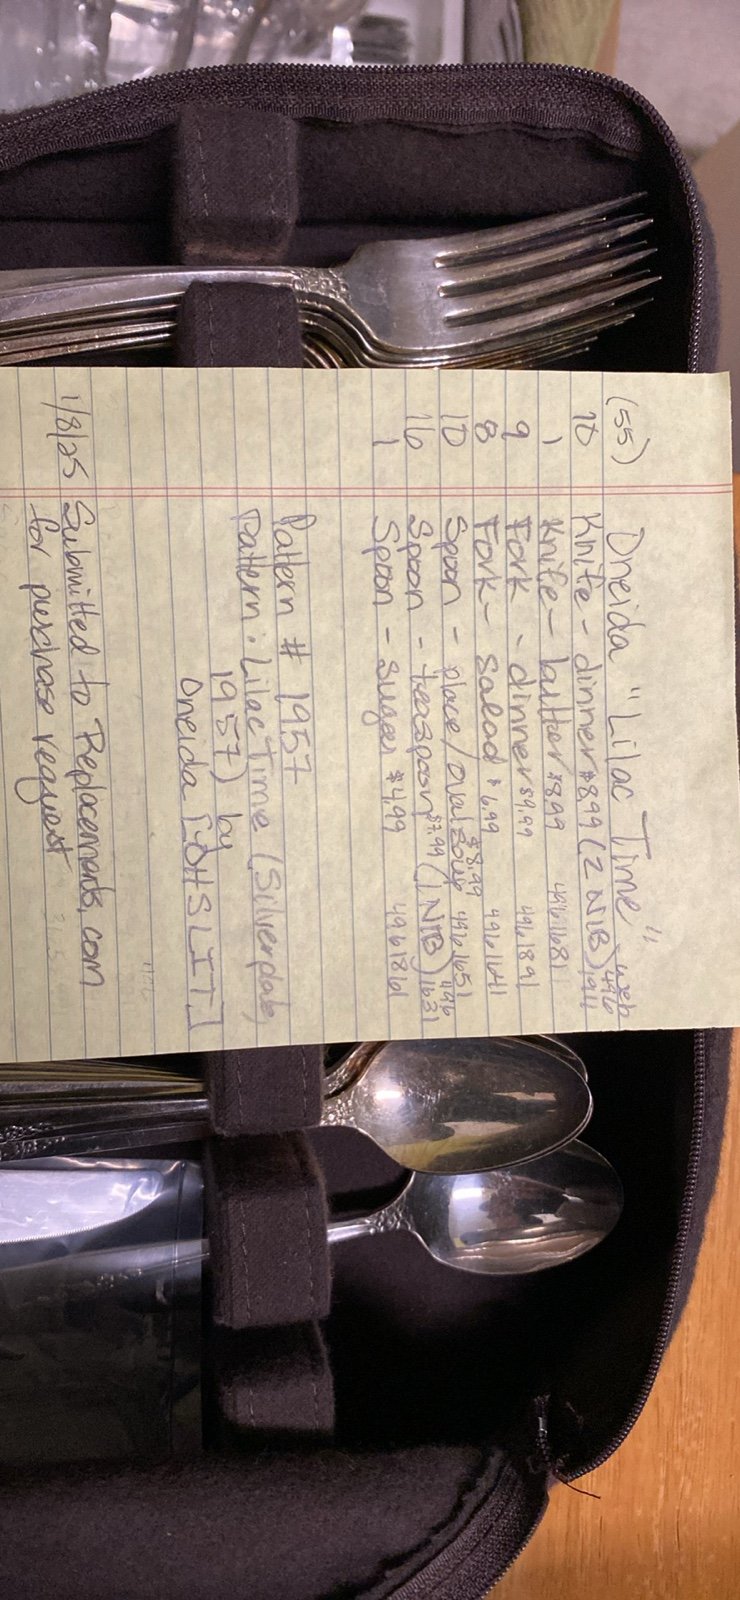 (55) Oneida "Lilac Time" web
10 Knife - dinner $8.99 (2 NIB) 496 1911
1 Knife - butter $8.99 4961681
9 Fork - dinner $9.99 4961891
8 Fork - salad $6.99 4961641
10 Spoon - place/oval soup $8.99 4961651
16 Spoon - teaspoon $7.99 (1 NIB) 496 1631
1 Spoon - sugar $4.99
Pattern # 1957
Pattern: Lilac Time (Silverplate,
1957) by
Oneida [OHSLIT]
1/8/25 Submitted to Replacements.com
for purchase request